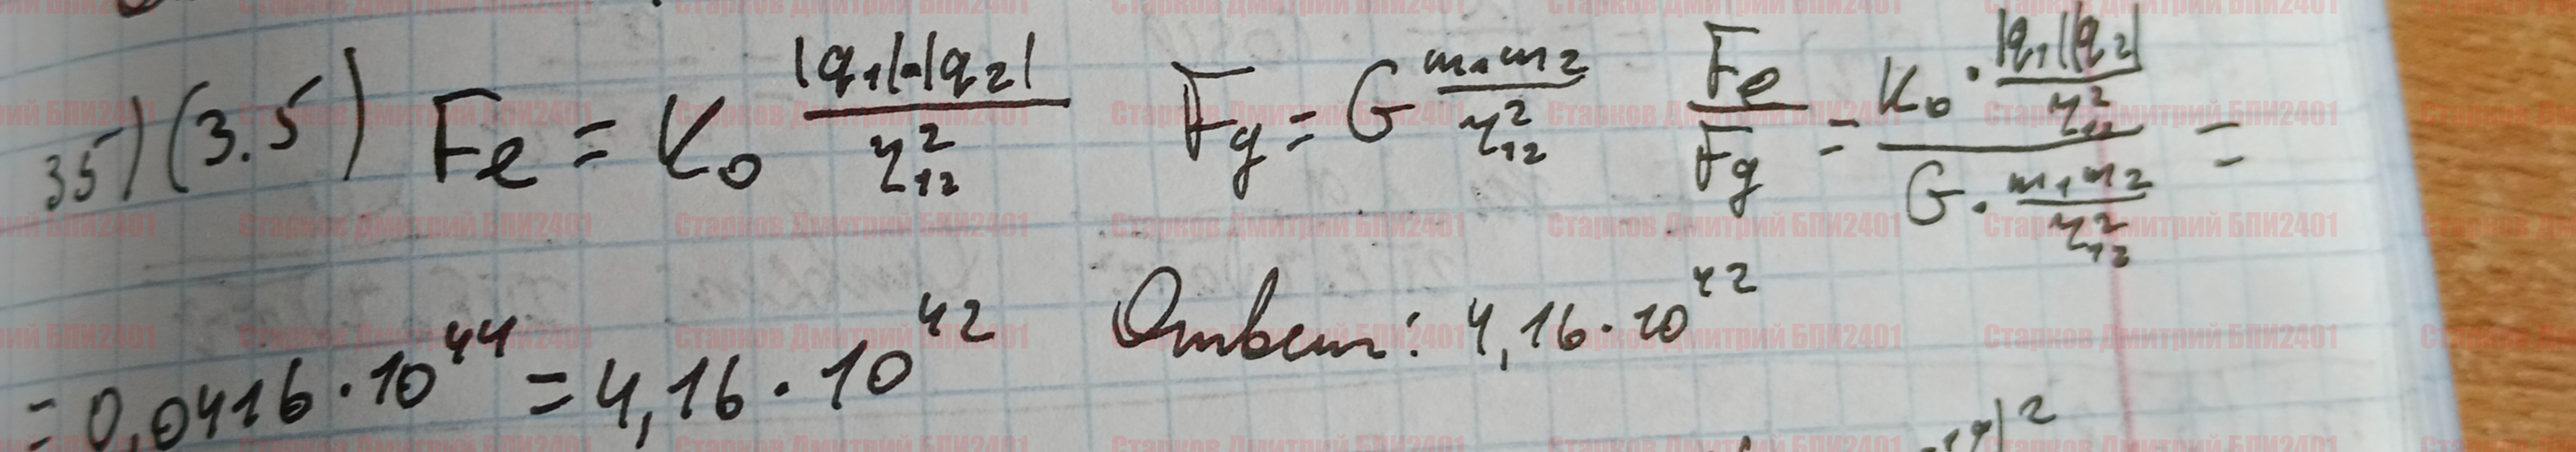 35) (3.5) Fe = K₀ |q₁|·|q₂| / r₁₂² Fg = G m₁m₂ / r₁₂² Fe / Fg = K₀ · |q₁||q₂| / r₁₂² / G · m₁m₂ / r₁₂² =
= 0,0416 · 10⁴⁴ = 4,16 · 10⁴² Ответ: 4,16 · 10⁴²
Старков Дмитрий БПИ2401